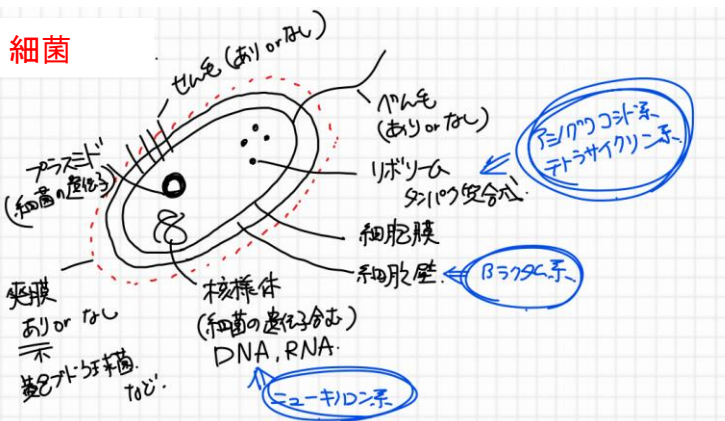 細菌
せん毛(ありorなし)
べん毛
(ありorなし)
プラスミド
(細菌の遺伝子)
リボソーム
タンパク質合成
アミノグリコシド系、
テトラサイクリン系、
細胞膜
細胞壁
Bラクタム系、
莢膜
ありorなし
黄色ブドウ球菌
など.
核様体
(細菌の遺伝子含む)
DNA,RNA.
ニューキノロン系